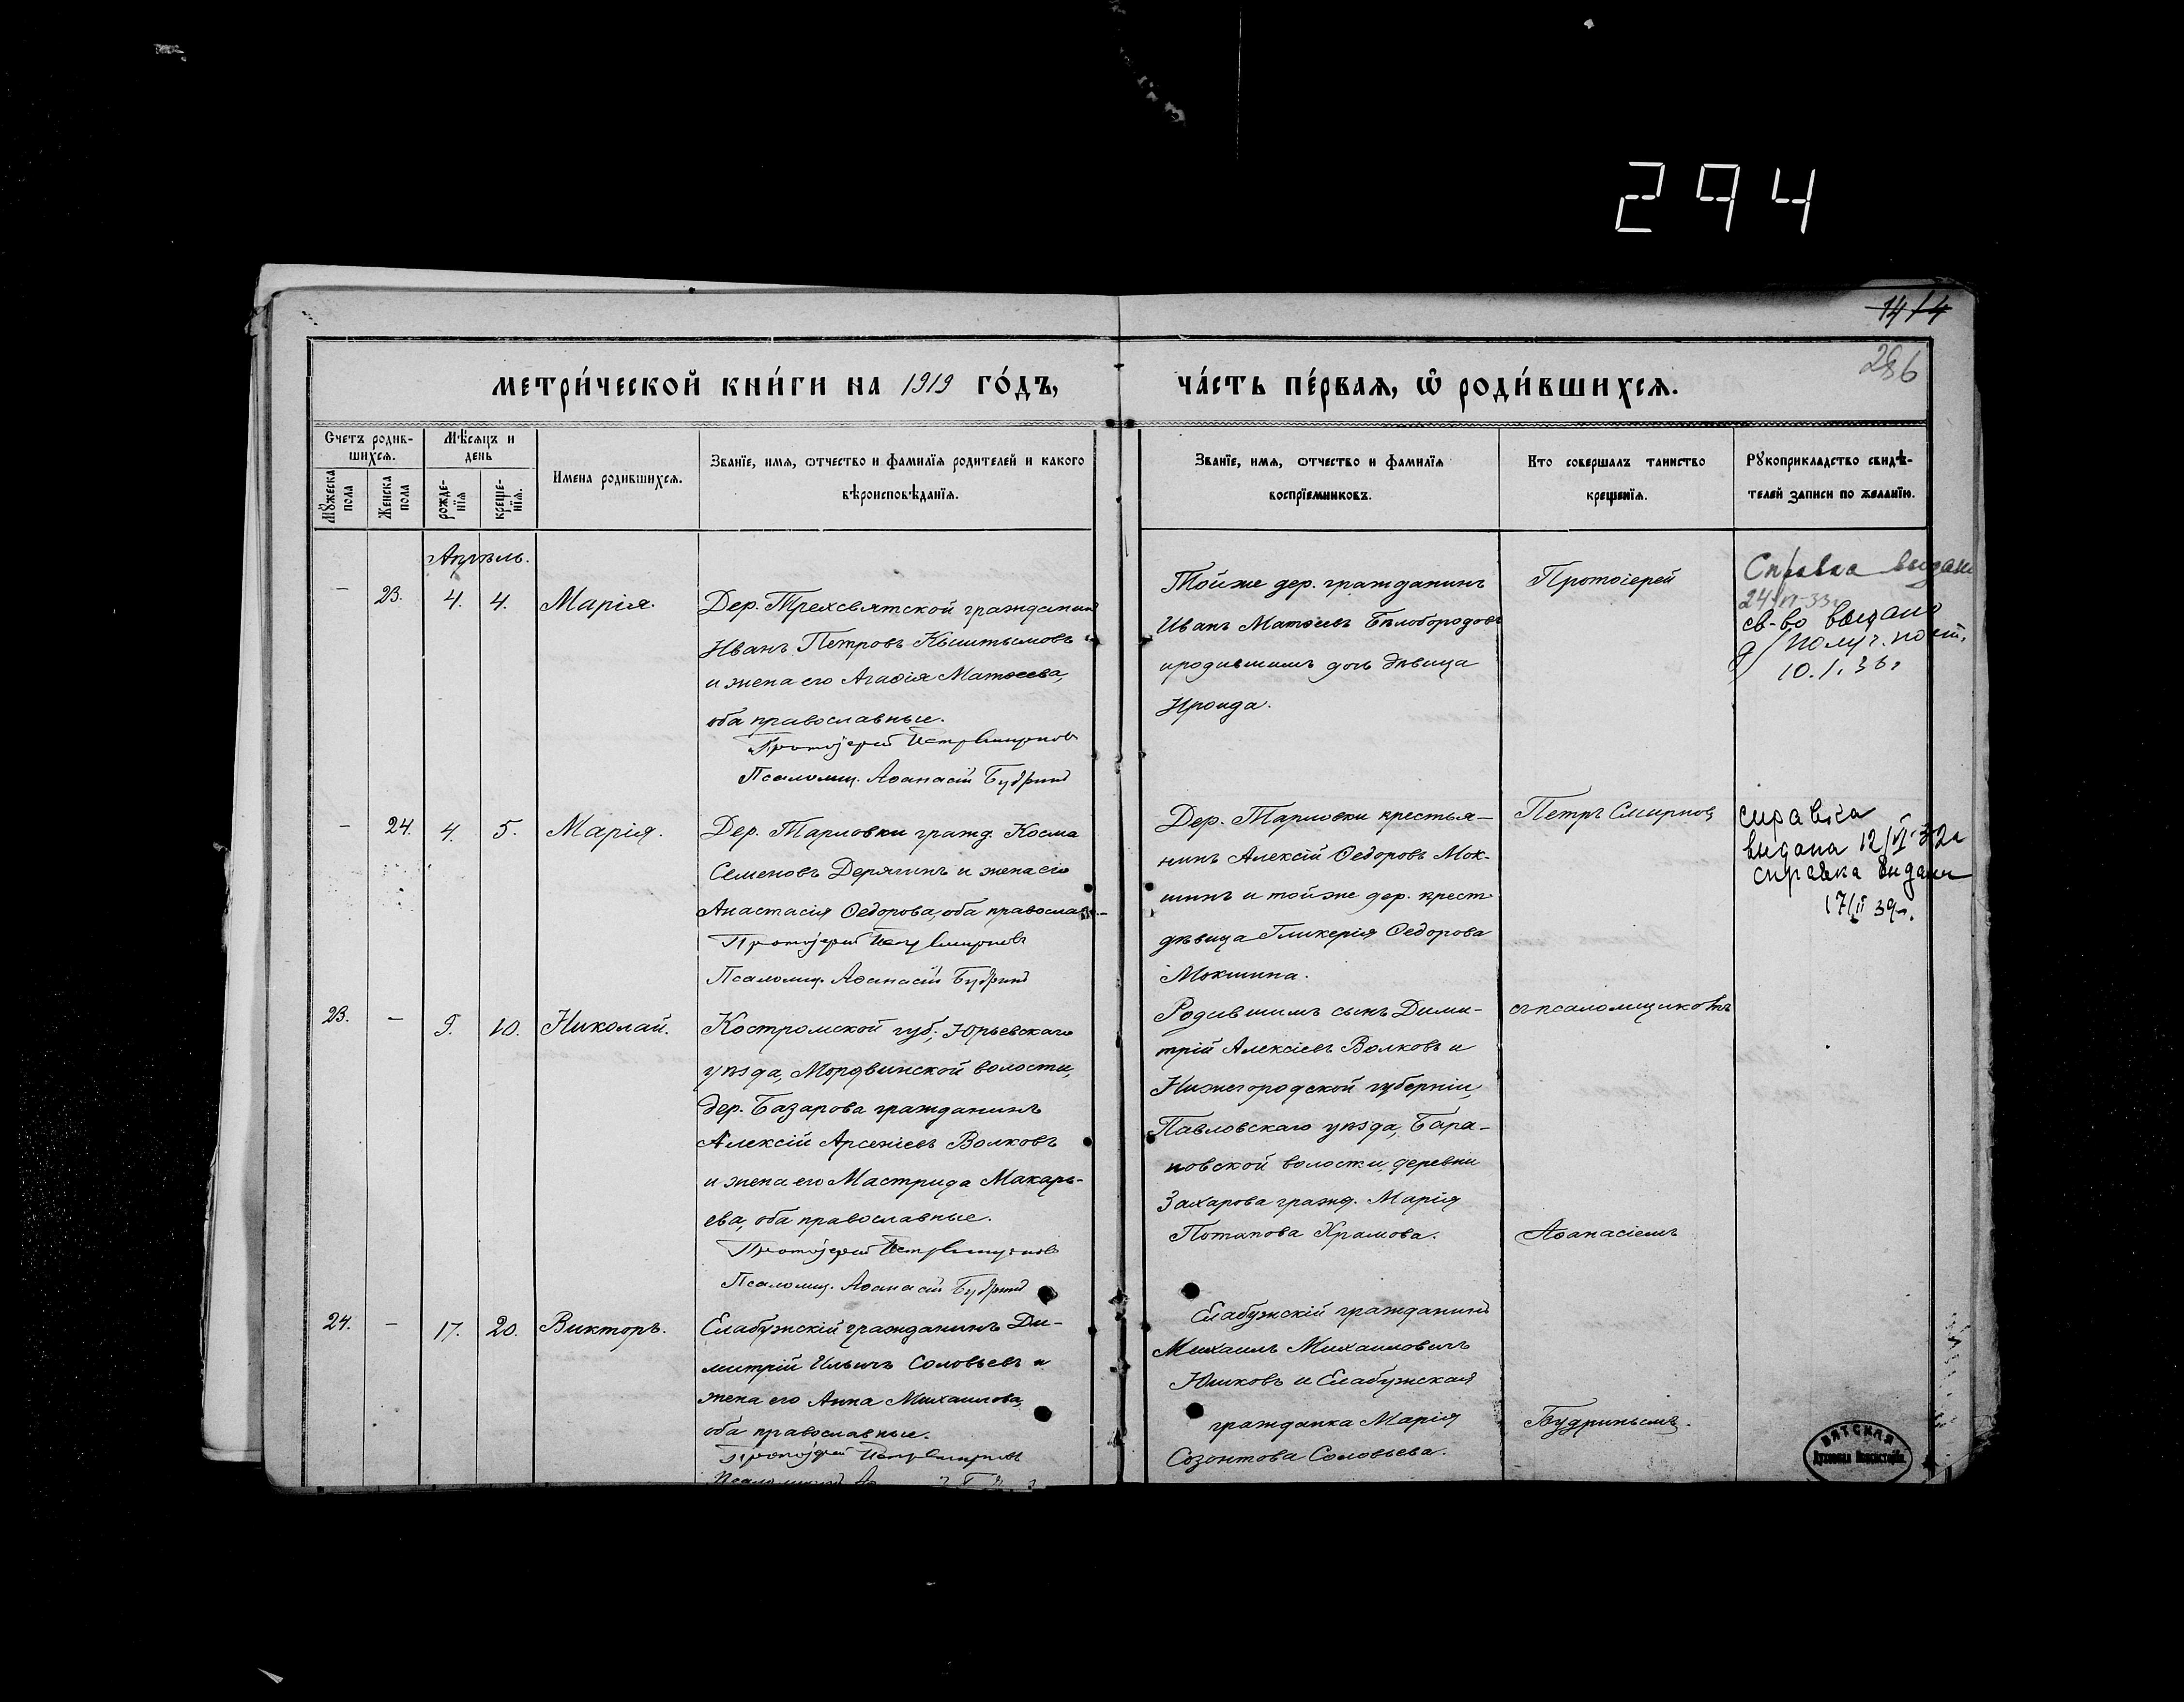 294
14 14
286
МЕТРИ́ЧЕСКОЙ КНИ́ГИ НА 1919 ГО́ДЪ,
ЧА́СТЬ ПЕ́РВАЯ, Ѽ РОДИ́ВШИХСЯ.
Счетъ родив-
шихся.
Мѣсяцъ и
день
Мꙋжеска
пола
Женска
пола
рожде-
нїя
креще-
нїя.
Имена родившихся.
Званїе, имя, ѻтчество и фамилїя родителей и какого
вѣроисповѣданїя.
Званїе, имя, ѻтчество и фамилїя
воспрїемниковъ.
Кто совершалъ таинство
крещенїя.
Рꙋкоприкладство свидѣ-
телей записи по желанїю.
Апрѣль.
— 23. 4. 4. Марія.
Дер. Трехсвятской гражданинъ
Иванъ Петровъ Кыштымовъ
и жена его Агафія Матѳеева,
оба православные.
Протоіерей Петръ Смирновъ
Псаломщ. Аѳанасій Будринъ
Тойже дер. гражданинъ
Иванъ Матѳеевъ Бѣлобородовъ
и родившимъ дочь дѣвица
Ираида.
Протоіерей
Справка выдана
24/VI-33г
св-во выдано
д/получ. посп.
10.1.36.
— 24. 4. 5. Марія.
Дер. Тарловки гражд. Косма
Семеновъ Дерягинъ и жена его
Анастасія Ѳедорова, оба православ.-
Протоіерей Петръ Смирновъ
Псаломщ. Аѳанасій Будринъ
Дер. Тарловки крестья-
нинъ Алексій Ѳедоровъ Мок-
шинъ и тойже дер. крест.
дѣвица Гликерія Ѳедорова
Мокшина.
Петръ Смирновъ
справка
выдана 12/VI-32г
справка выдана
17/II 39г.
23. — 9. 10. Николай.
Костромской губ., Юрьевскаго
уѣзда, Мордвинской волости,
дер. Базарова гражданинъ
Алексій Арсеніевъ Волковъ
и жена его Мастрида Макарь-
ева, оба православные.
Протоіерей Петръ Смирновъ
Псаломщ. Аѳанасій Будринъ
Родившимъ сынъ Дими-
трій Алексіевъ Волковъ и
Нижегородской губерніи,
Павловскаго уѣзда, Бара-
новской волости, деревни
Захарова гражд. Марія
Потапова Храмова.
съ псаломщикомъ
Аѳанасіемъ
24. — 17. 20. Викторъ.
Елабужскій гражданинъ Ди-
митрій Ильичъ Соловьевъ и
жена его Анна Михаилова,
оба православные.
Протоіерей Петръ Смирновъ
Елабужскій гражданинъ
Михаилъ Михаиловичъ
Юшковъ и Елабужская
гражданка Марія
Созонтова Соловьева.
Будринымъ.
ВЯТСКАЯ
Духовная Консисторія